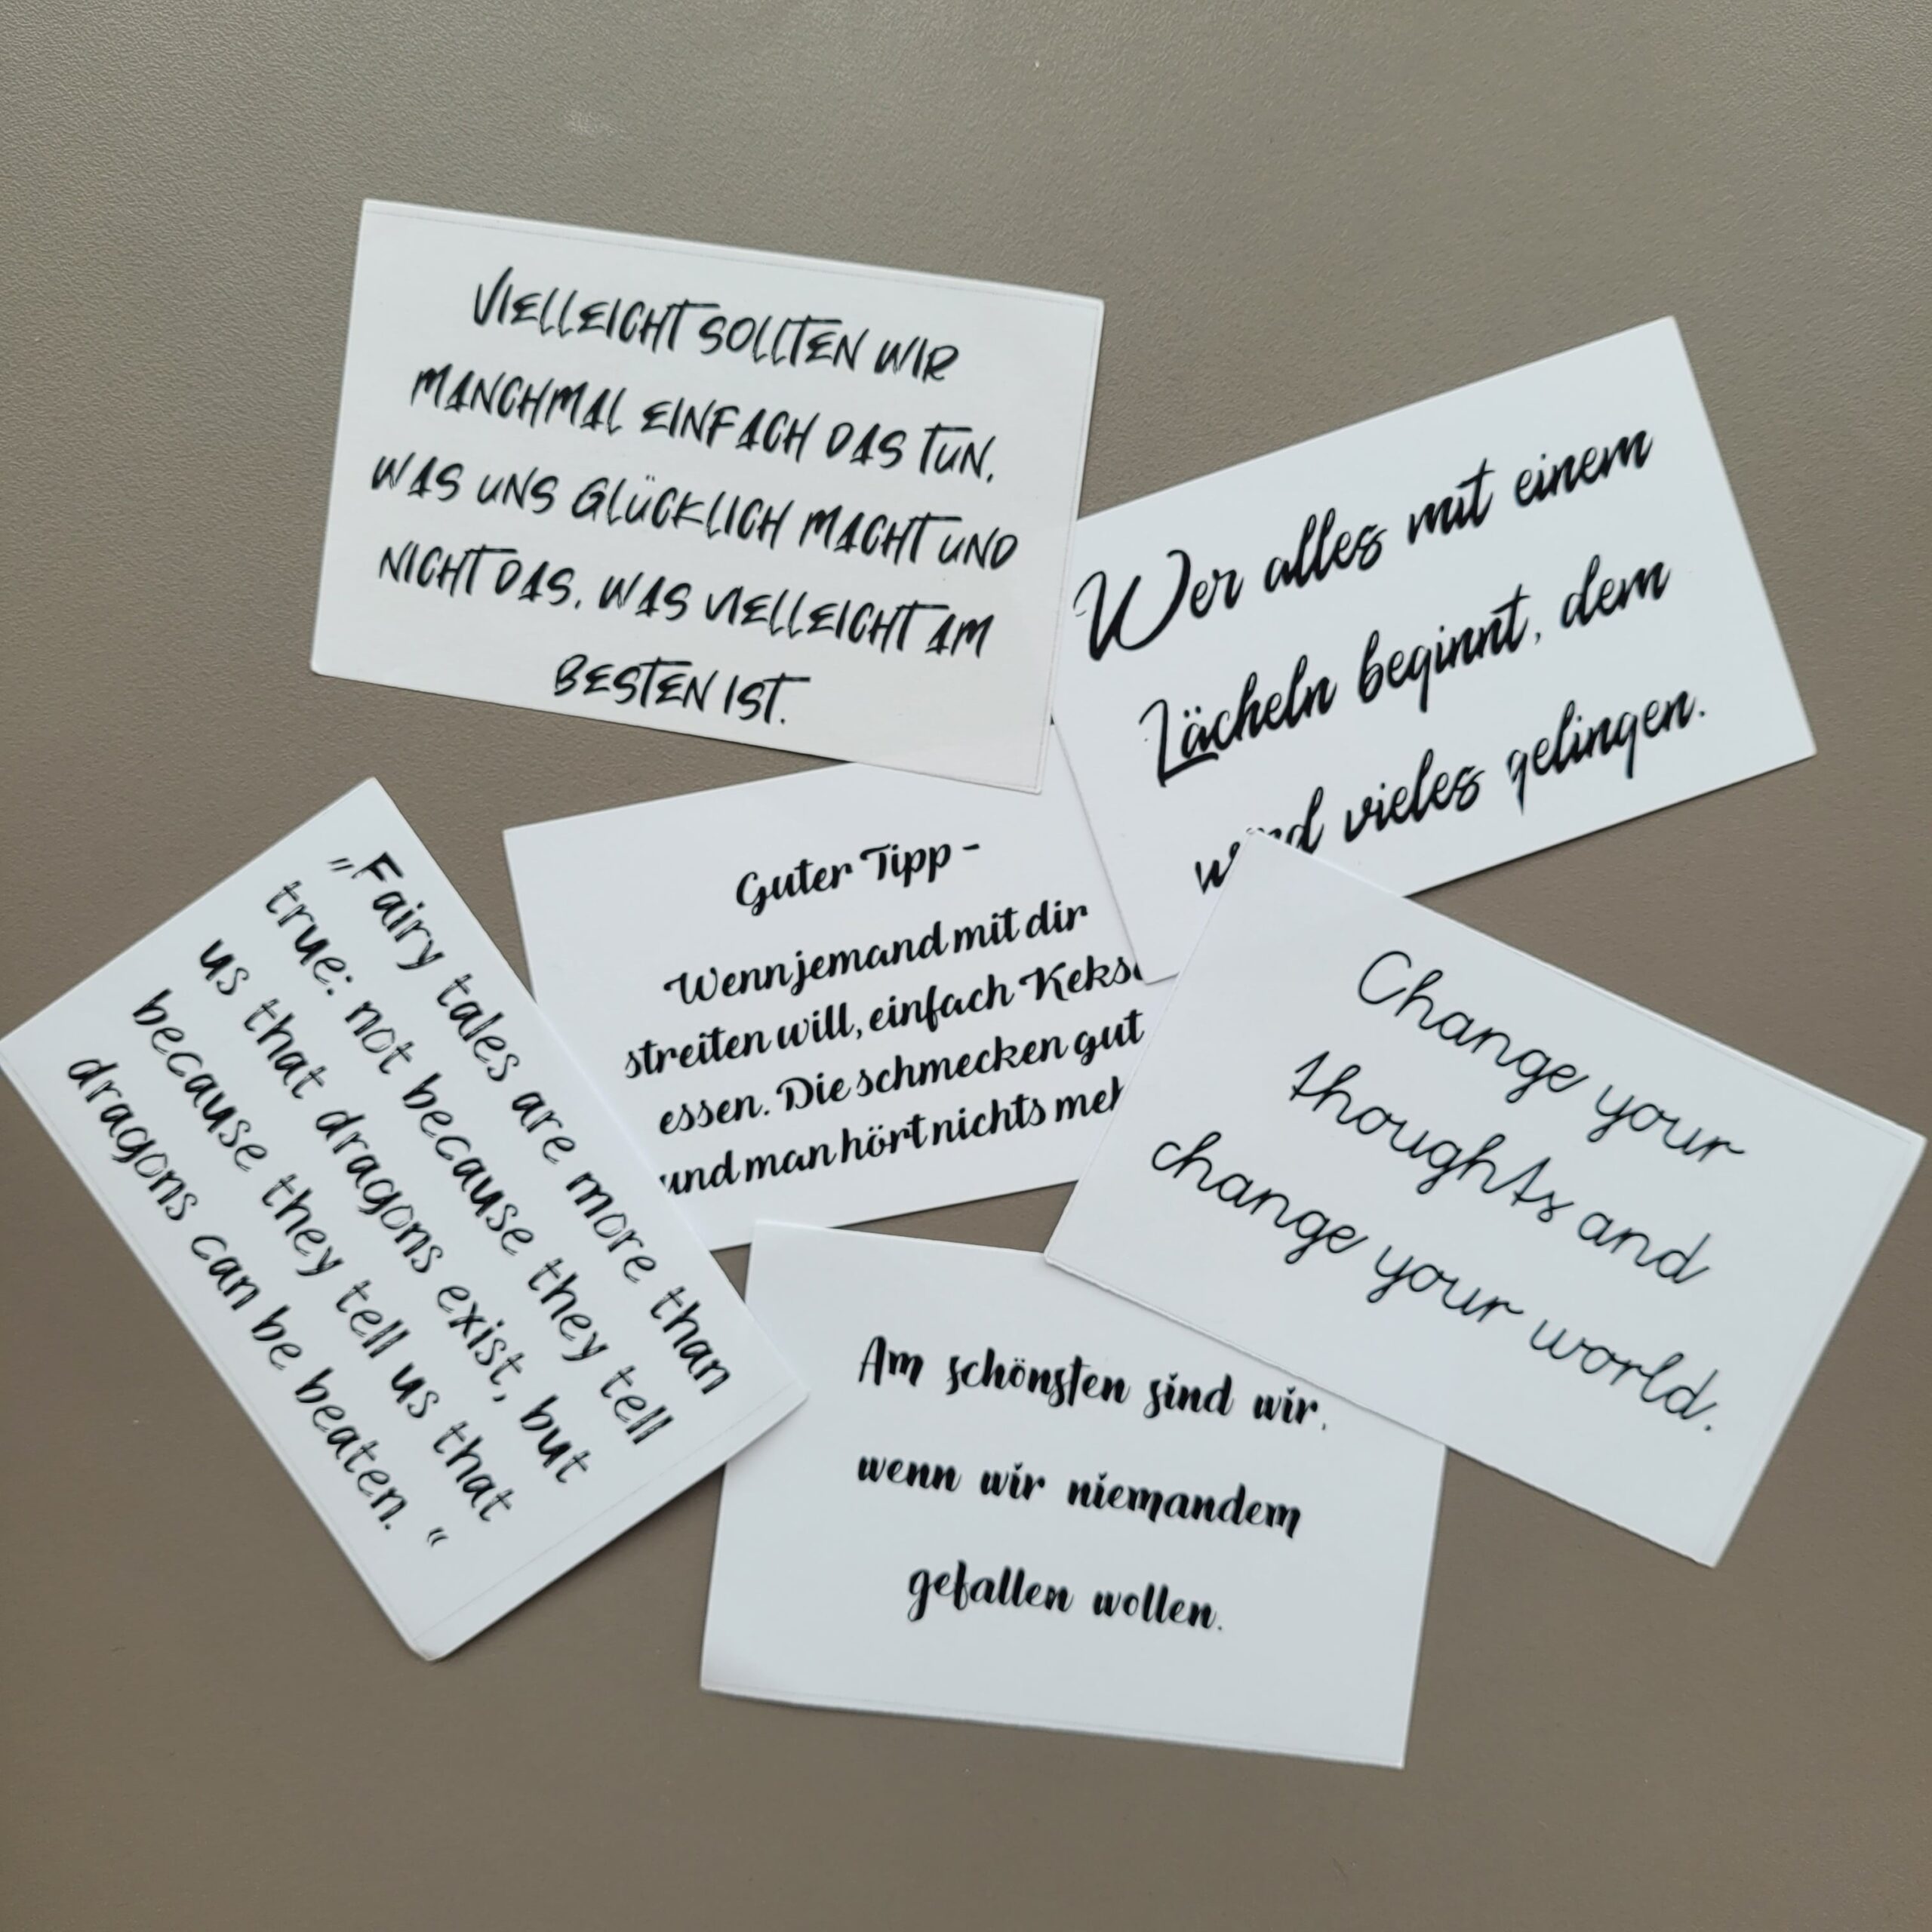 VIELLEICHT SOLLTEN WIR
MANCHMAL EINFACH DAS TUN,
WAS UNS GLÜCKLICH MACHT UND
NICHT DAS, WAS VIELLEICHT AM
BESTEN IST.
Wer alles mit einem
Lächeln beginnt, dem
vieles gelingen.
Guter Tipp -
Wenn jemand mit dir
streiten will, einfach
essen. Die schmecken gut
und man hört nichts
„Fairy tales are more than
true: not because they tell
us that dragons exist, but
because they tell us that
dragons can be beaten. “
Change your
thoughts and
change your world.
Am schönsten sind wir,
wenn wir niemandem
gefallen wollen.